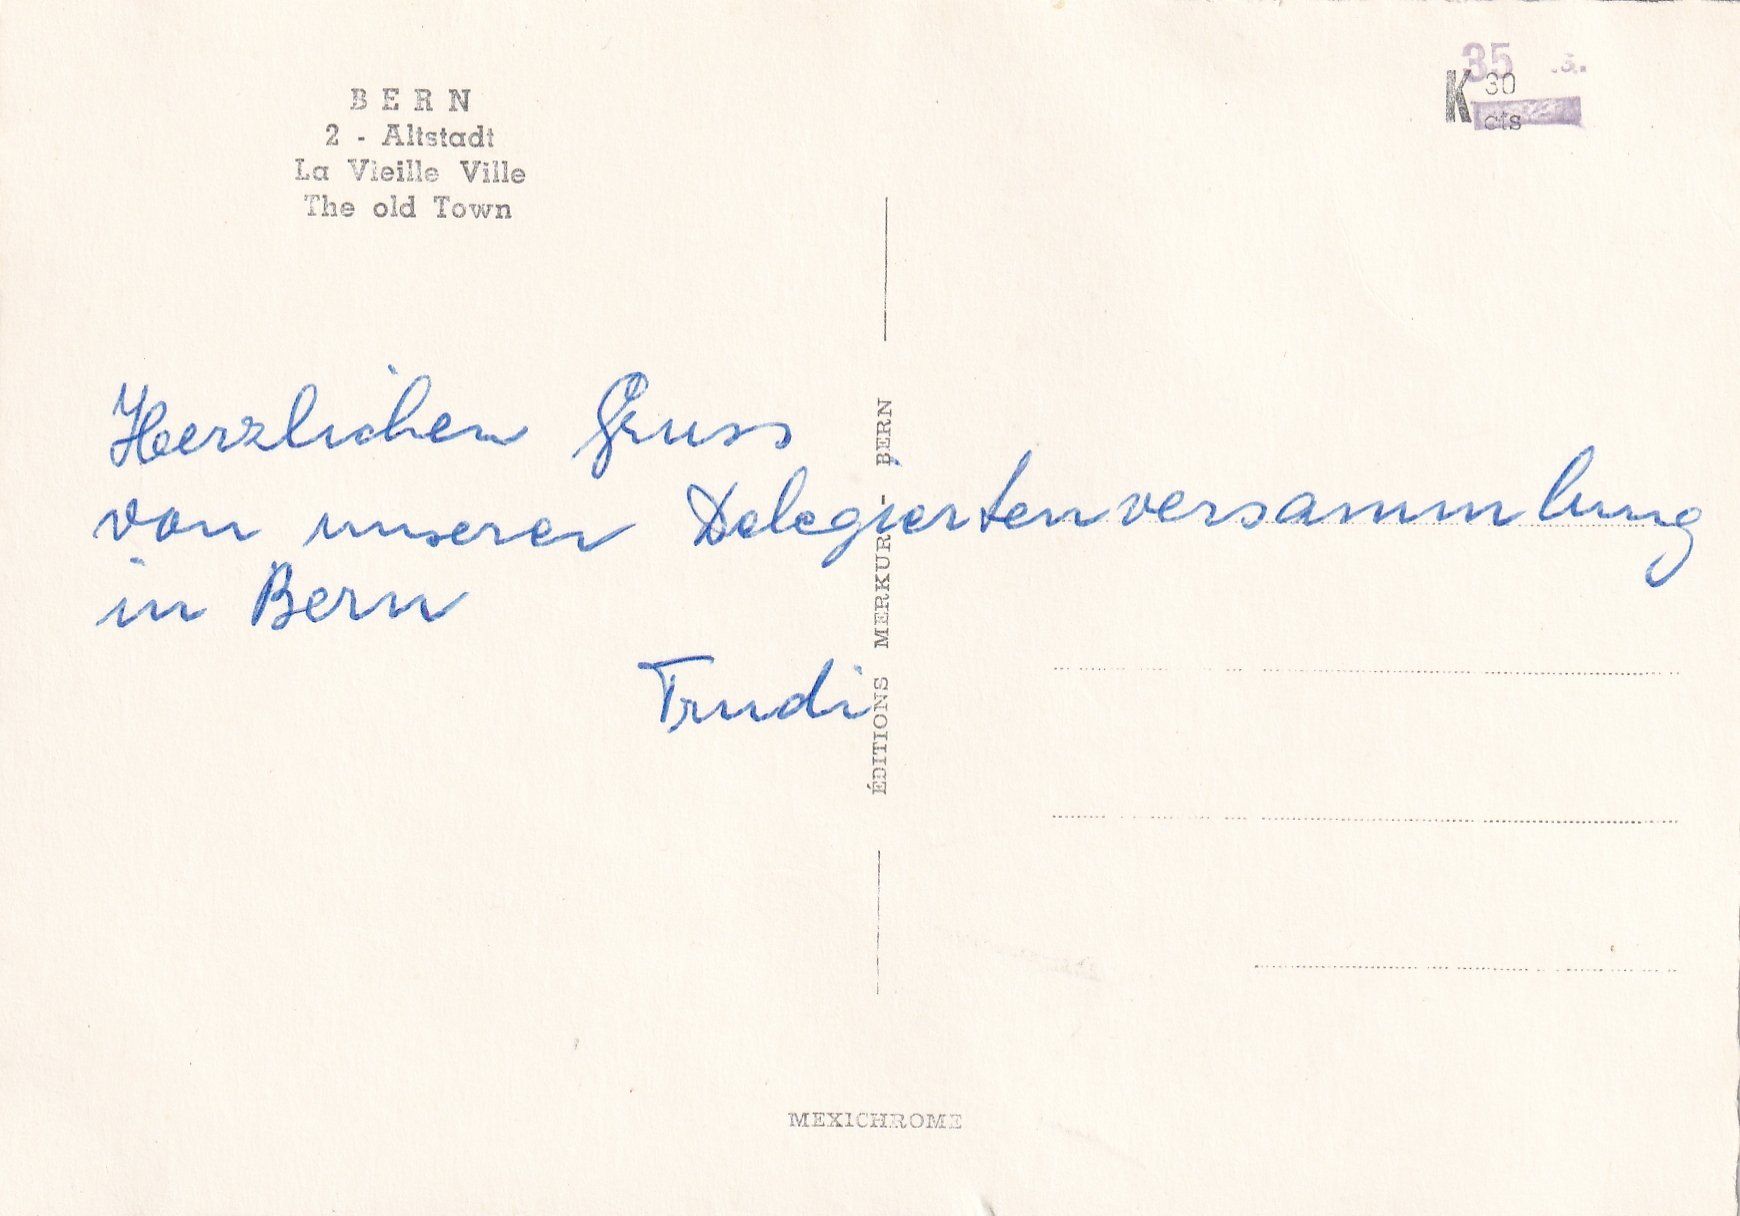 BERN
2 - Altstadt
La Vieille Ville
The old Town
35
K 30
cts
Herzlichen Gruss
von unserer Delegiertenversammlung
in Bern
Trudi
ÉDITIONS MERKUR - BERN
MEXICHROME